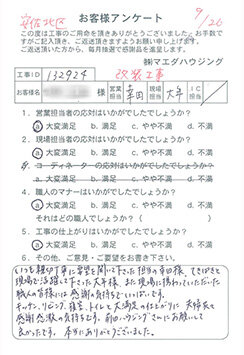 安佐北区
お客様アンケート
9/26
この度は工事のご用命を頂きありがとうございました。お手数で
すがご記入頂き、ご返送頂きますようお願い申し上げます。
ご返送頂いた方から、毎月抽選で感謝品を進呈します。
㈱マエダハウジング
工事ID 132929 改装工事
お客様名 様 営業担当 幸田 現場担当 大平 IC担当
1．営業担当者の応対はいかがでしたでしょうか？
a. 大変満足 b. 満足 c. やや不満 d. 不満
2．現場担当者の応対はいかがでしたでしょうか？
a. 大変満足 b. 満足 c. やや不満 d. 不満
3．コーディネーターの応対はいかがでしたでしょうか？
a. 大変満足 b. 満足 c. やや不満 d. 不満
4．職人のマナーはいかがでしたでしょうか？
a. 大変満足 b. 満足 c. やや不満 d. 不満
それはどの職人でしょうか？（ ）
5．工事の仕上がりはいかがでしたでしょうか？
a. 大変満足 b. 満足 c. やや不満 d. 不満
6．その他、ご意見・ご要望をお書き下さい。
いつも親切丁寧に要望を聞いて下さった担当の幸田様、てきぱきと
現場で活躍して下さった大平様、また現場に携わっていただいた
職人の皆様には感謝の気持ちでいっぱいです。
キッチン、リビング、寝室、トイレと大満足の仕上がりに夫婦共々
感謝感激の気持ちです。前田ハウジングさんにお願いして
良かったです。本当にありがとうございました。